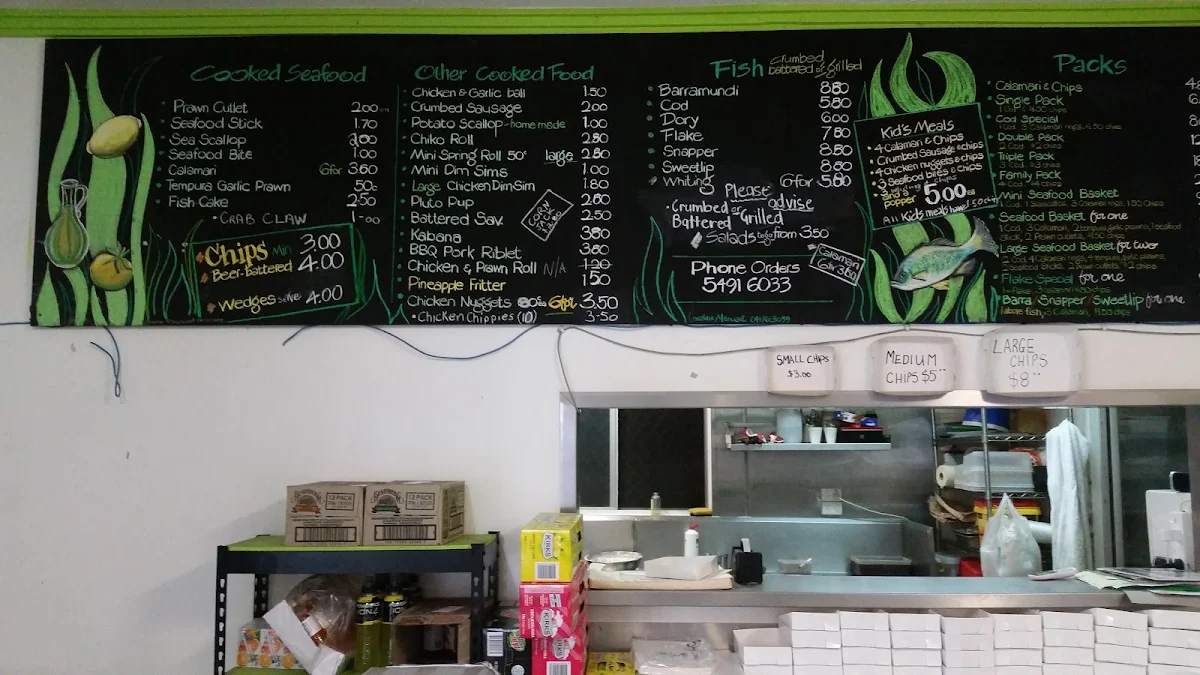 Cooked Seafood
Prawn Cutlet 2.00
Seafood Stick 1.70
Sea Scallop
Seafood Bite 1.00
Calamari 6 for 3.60
Tempura Garlic Prawn 50c
Fish Cake 2.50
• CRAB CLAW 1-00
Chips Min 3.00
Beer-battered 4.00
Wedges 4.00
Other Cooked Food
Chicken & Garlic ball 1.50
Crumbed Sausage 2.00
Potato Scallop - home made 1.00
Chiko Roll 2.80
Mini Spring Roll 50c large 2.80
Mini Dim Sims 1.00
Large Chicken Dim Sim 1.80
Pluto Pup 2.80
Battered Sav. 2.50
Kabana 3.80
BBQ Pork Riblet 3.80
Chicken & Prawn Roll N/A 1.20
Pineapple Fritter 1.50
Chicken Nuggets 6 for 3.50
• Chicken Chippies (10) 3-50
CORN JACK
Fish crumbed battered or grilled
Barramundi 8.80
Cod 5.80
Dory 6.00
Flake 7.80
Snapper 8.80
Sweetlip 8.80
Whiting 6 for 5.60
Please advise
• Crumbed or
Battered Grilled
Salads from 3.50
Phone Orders
5491 6033
Calamari
6 for 3.60
Kid's Meals
• 4 Calamari & Chips
• Crumbed Sausage & chips
• 4 chicken nuggets & chips
• 3 Seafood bites & chips
and a popper 5.00
All Kids meals
Packs
Calamari & Chips
Single Pack
Cod Special
Double Pack
Triple Pack
Family Pack
Mini Seafood Basket
Seafood Basket for one
Large Seafood Basket for two
Flake Special for one
Barra/Snapper/Sweetlip for one
SMALL CHIPS
$3.00
MEDIUM
CHIPS $5
LARGE
CHIPS
$8
12 PACK
12 PACK
KIRKS
KIRKS
KIRKS